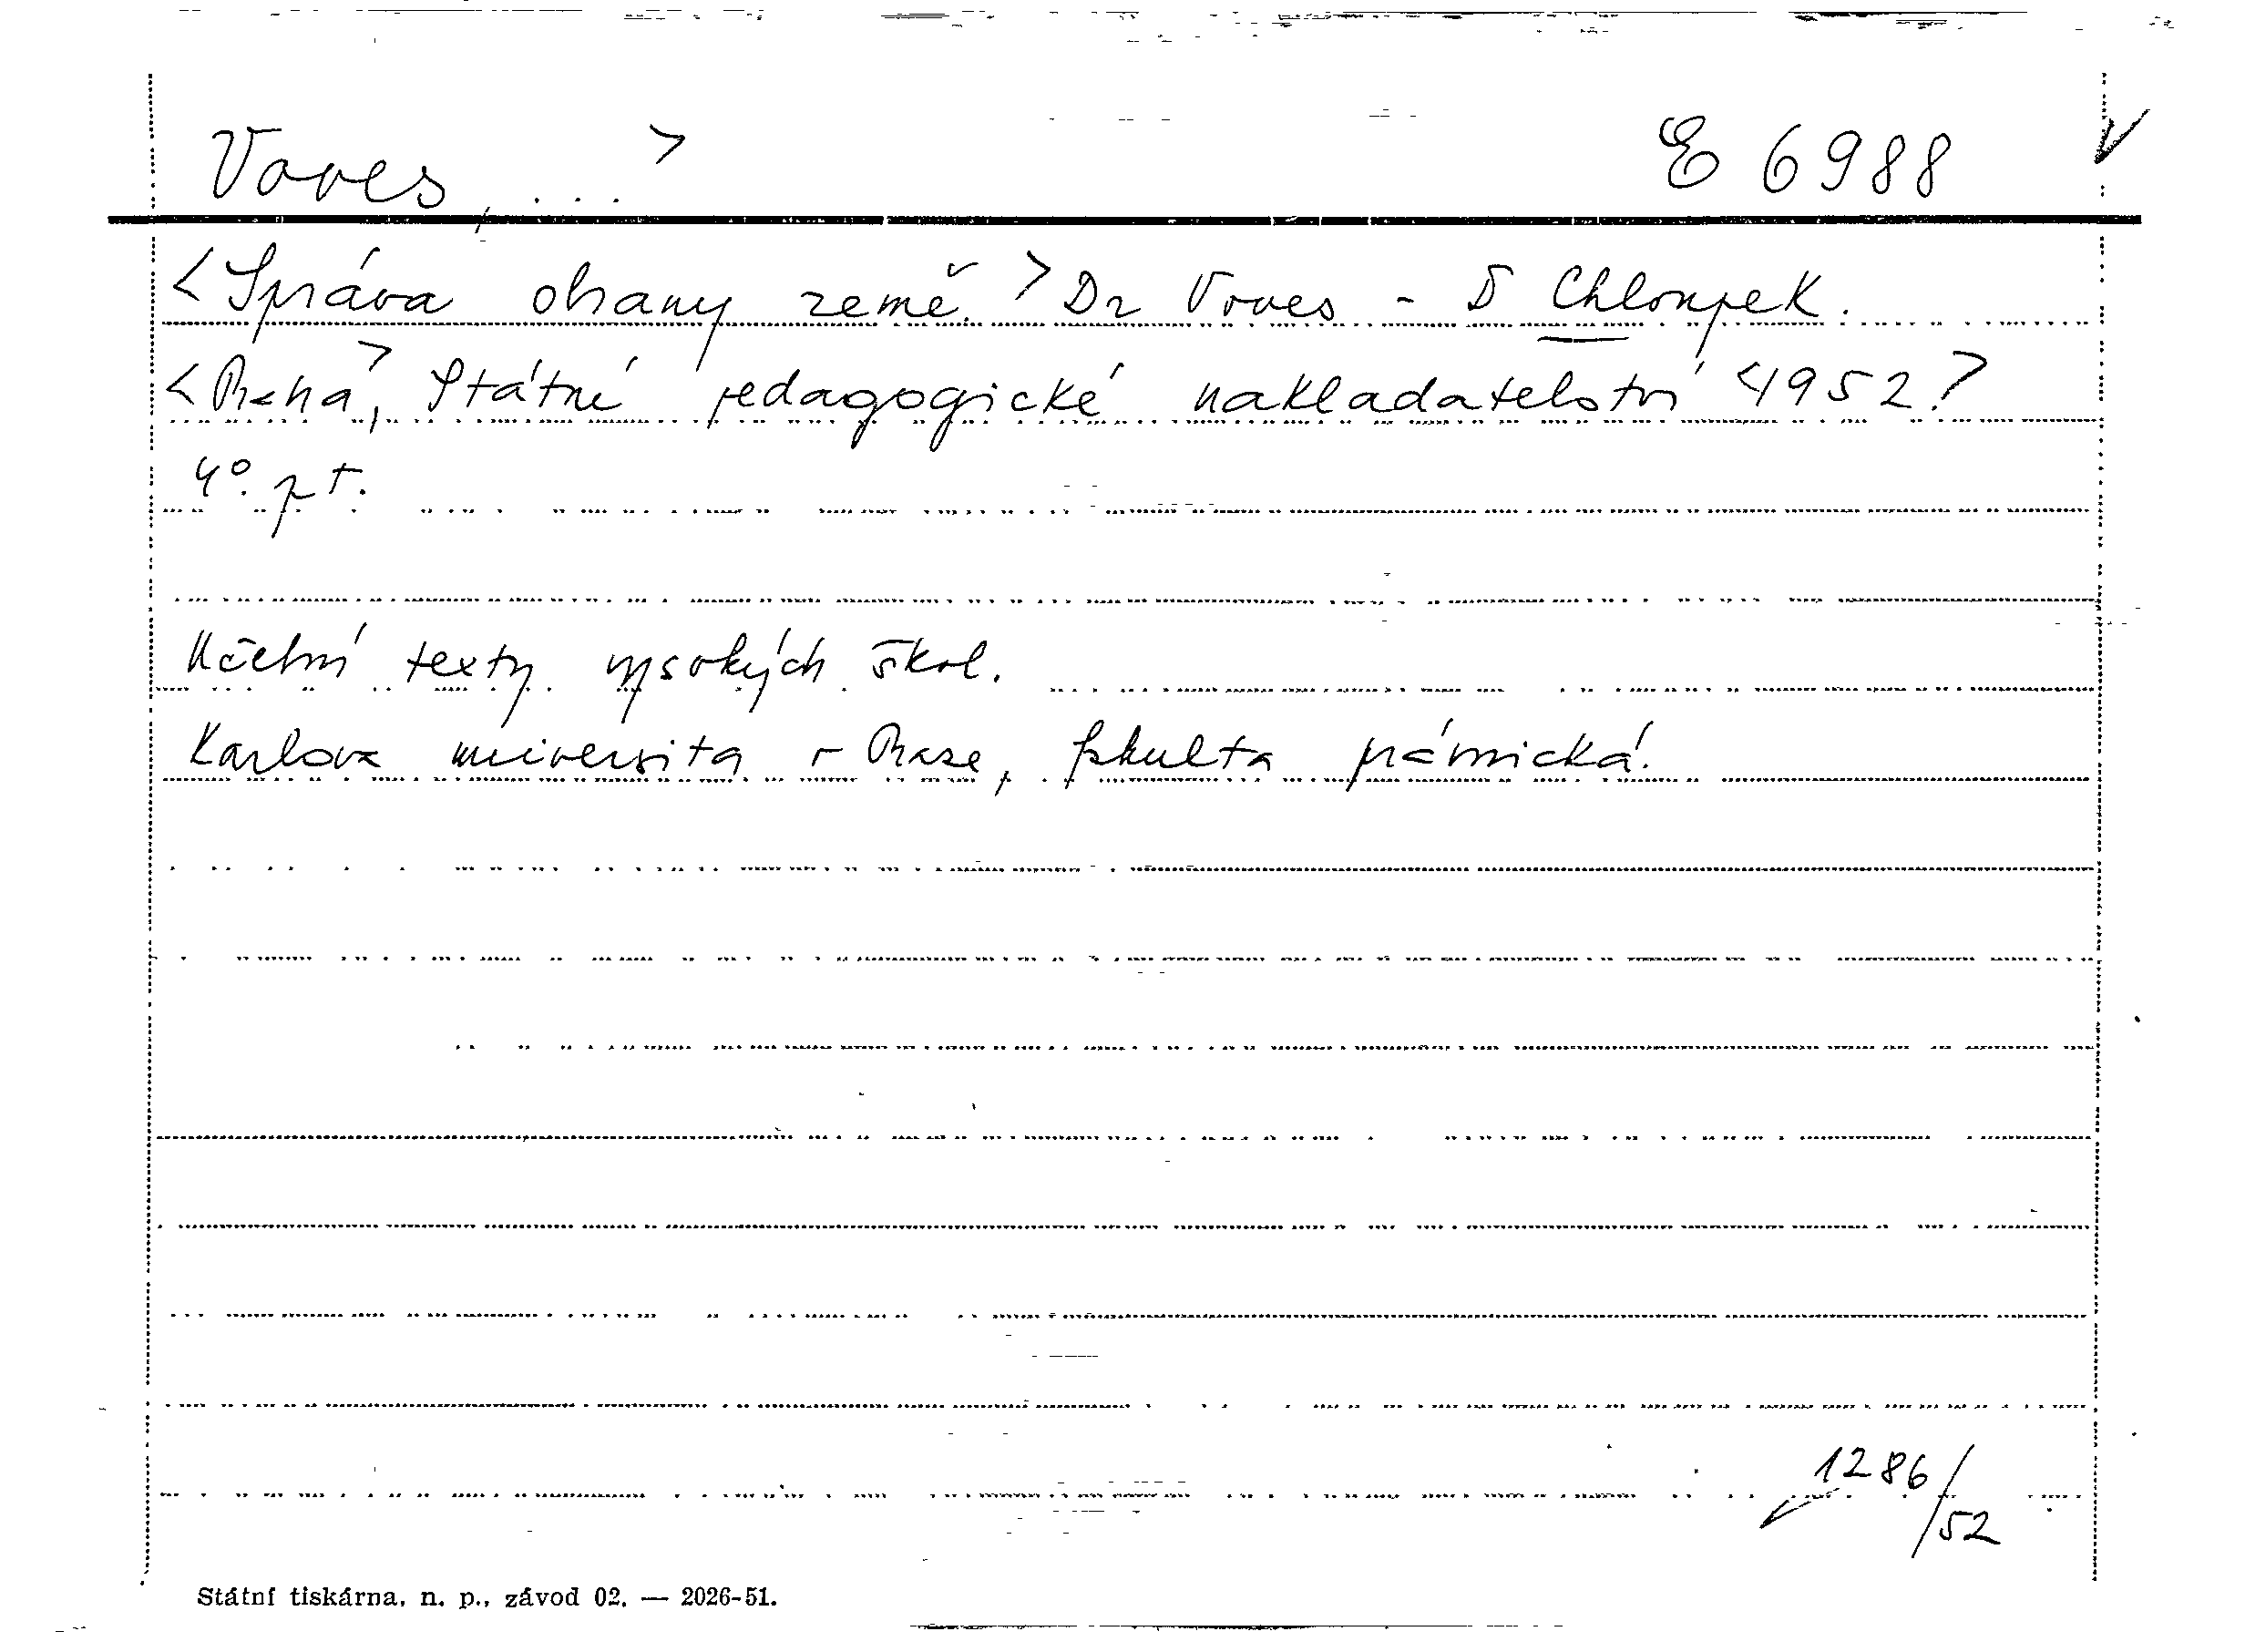 Voves, ... > E 6988
<Správa obrany země.> Dr Voves - D Chloupek.
<Praha>, Státní pedagogické nakladatelství <1952>
4°. pt.
Učební texty vysokých škol.
Karlova universita v Praze, fakulta právnická.
1286/52
Státní tiskárna, n. p., závod 02. — 2026-51.